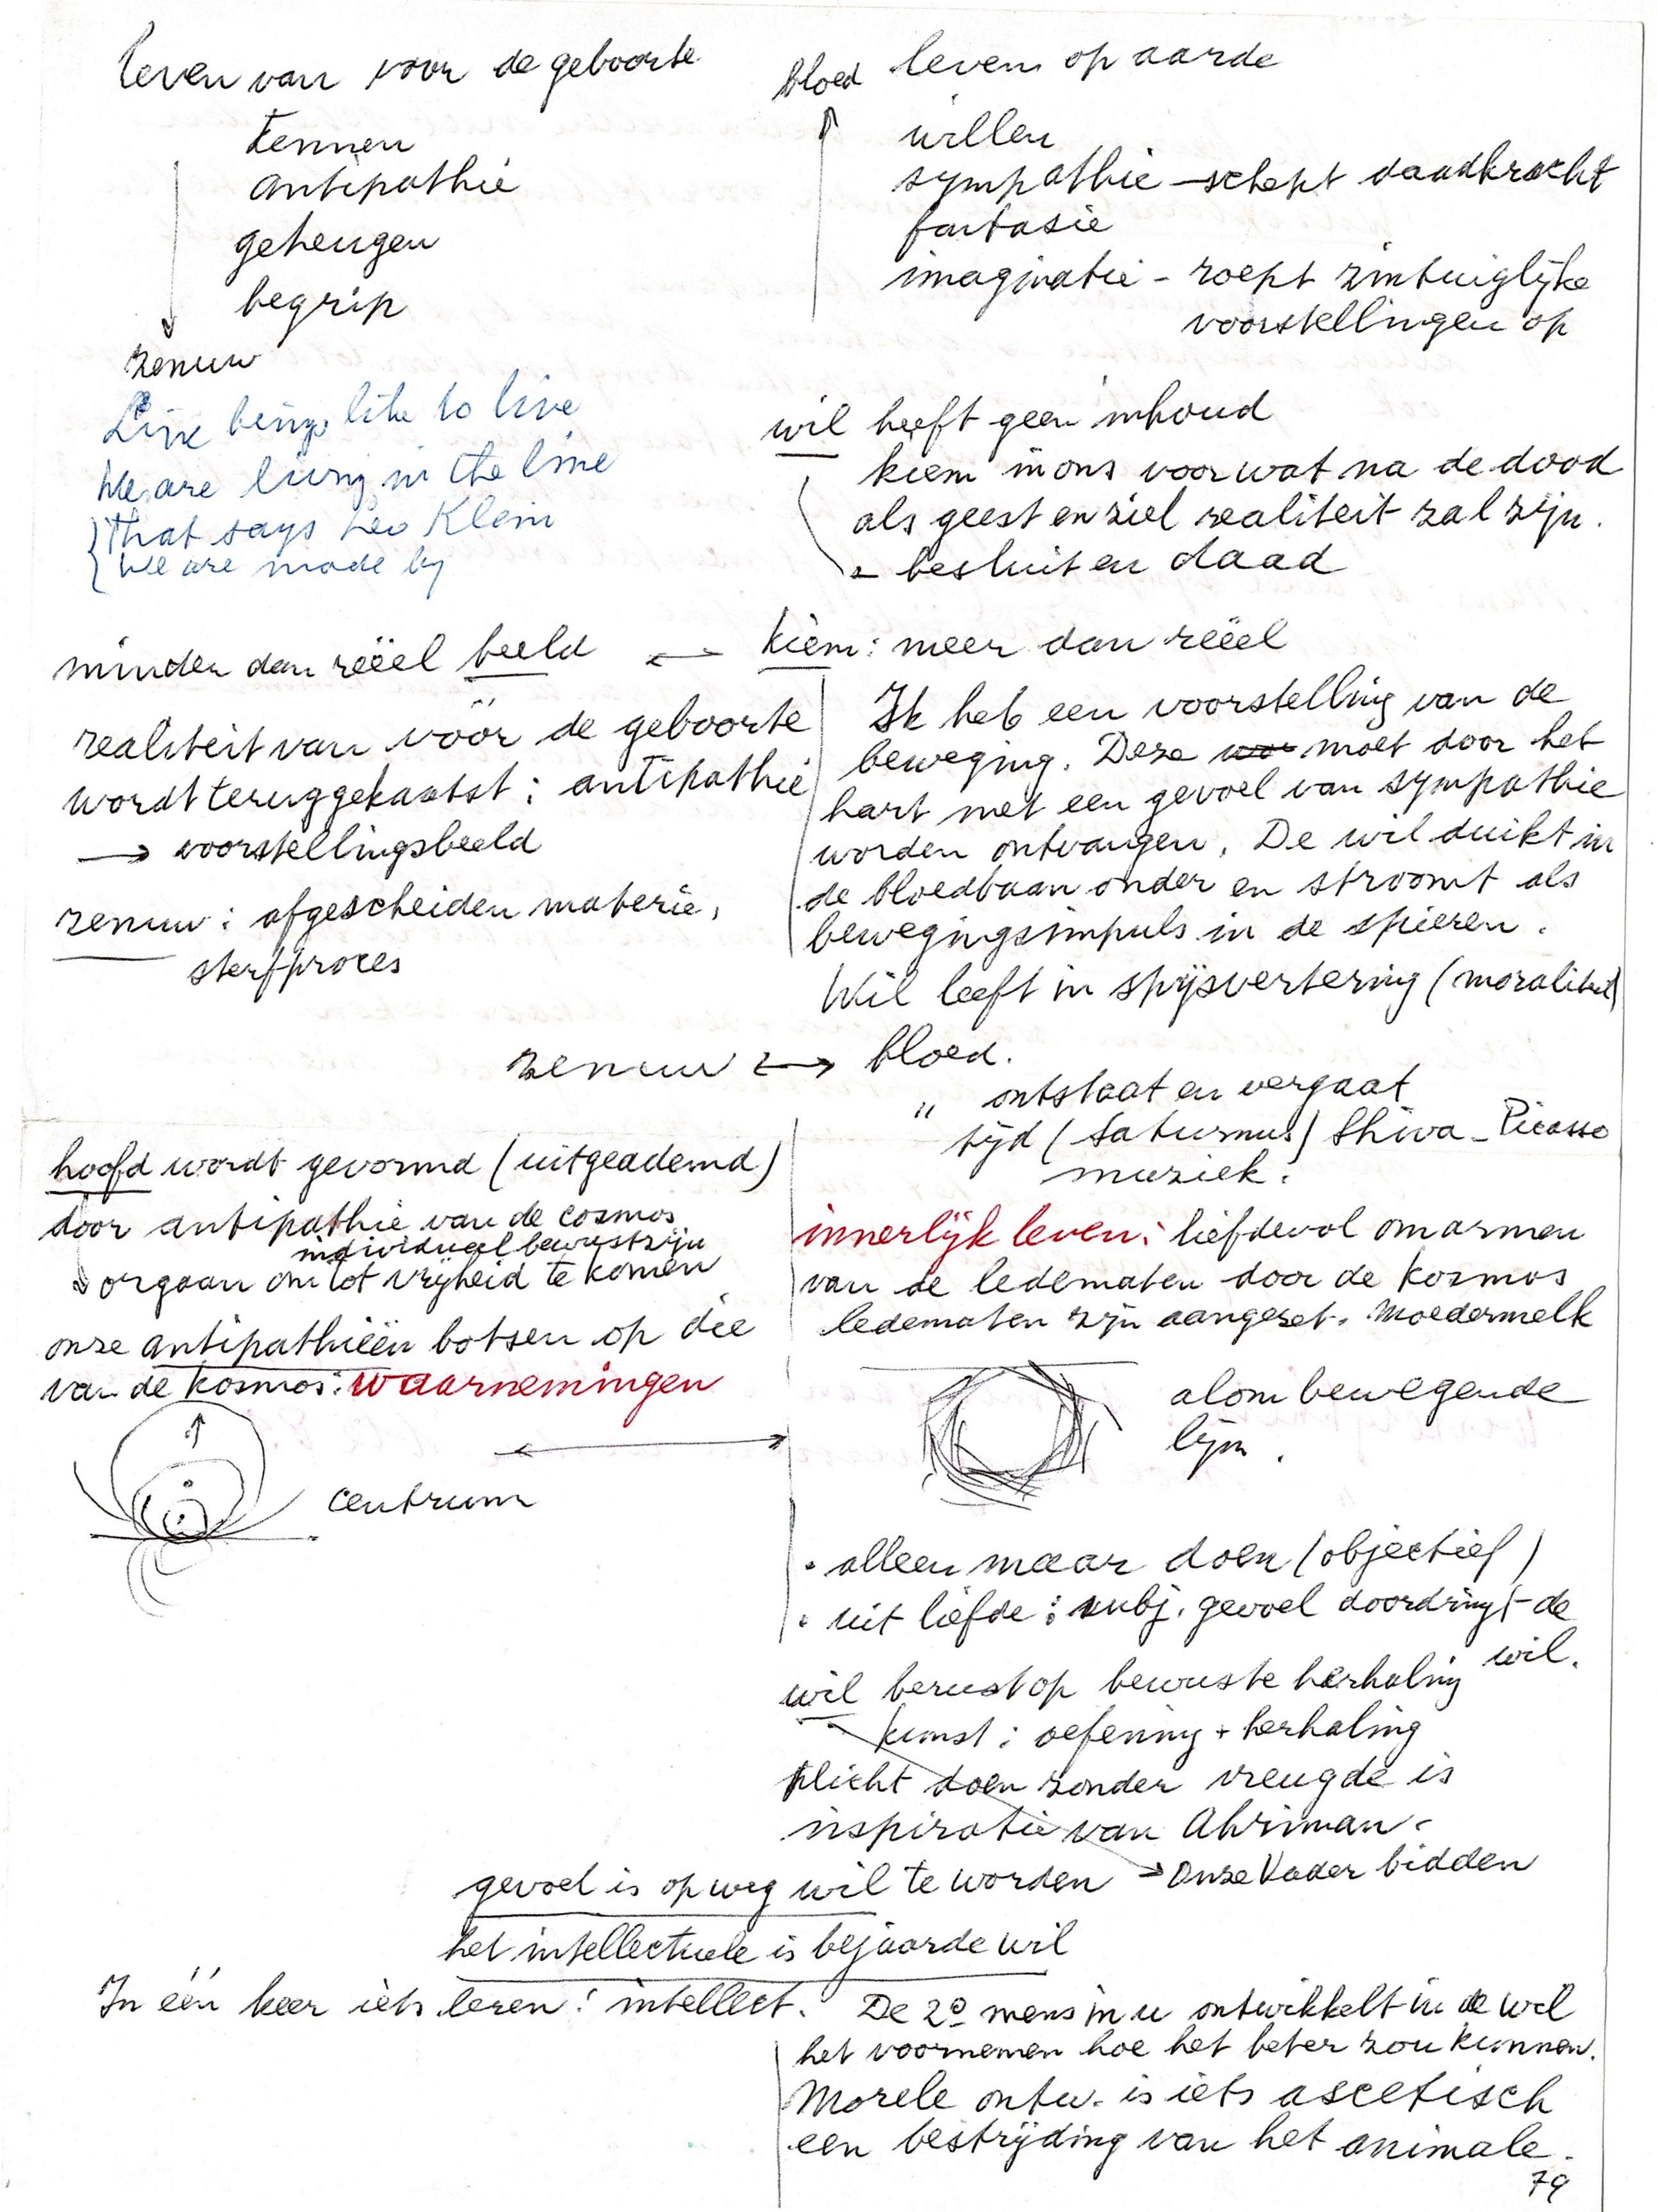 leven van voor de geboorte
kennen
antipathie
geheugen
begrip
zenuw
bloed leven op aarde
willen
sympathie – schept daadkracht
fantasie
imaginatie – roept zintuiglijke
voorstellingen op
beings like to live
We are living in the line
That says Leo Klein
We are made by
wil heeft geen inhoud
kiem in ons voor wat na de dood
als geest en ziel realiteit zal zijn.
besluit en daad
minder dan reëel beeld ↔ kiem: meer dan reëel
realiteit van vóór de geboorte
wordt teruggekaatst: antipathie
→ voorstellingsbeeld
zenuw: afgescheiden materie,
sterfproces
Ik heb een voorstelling van de
beweging. Deze moet door het
hart met een gevoel van sympathie
worden ontvangen. De wil duikt in
de bloedbaan onder en stroomt als
bewegingsimpuls in de spieren.
Wil leeft in spijsvertering (moraliteit)
zenuw ↔ bloed.
" ontstaat en vergaat
tijd (Saturnus) Shiva – Picasso
muziek.
hoofd wordt gevormd (uitgeademd)
door antipathie van de cosmos
individueel bewustzijn
orgaan om tot vrijheid te komen
onze antipathieën botsen op die
van de kosmos: waarnemingen
centrum
innerlijk leven: liefdevol omarmen
van de ledematen door de kosmos
ledematen zijn aangezet. Moedermelk
alom bewegende
lijn.
• alleen maar doen (objectief)
• uit liefde: subj. gevoel doordringt de
wil.
wil berust op bewuste herhaling
kunst: oefening + herhaling
plicht doen zonder vreugde is
inspiratie van Ahriman.
gevoel is op weg wil te worden → Onze Vader bidden
het intellectuele is bejaarde wil
In één keer iets leren: intellect.
De 2e mens in u ontwikkelt in de wil
het voornemen hoe het beter zou kunnen.
Morele ontw. is iets ascetisch
een bestrijding van het animale.
79